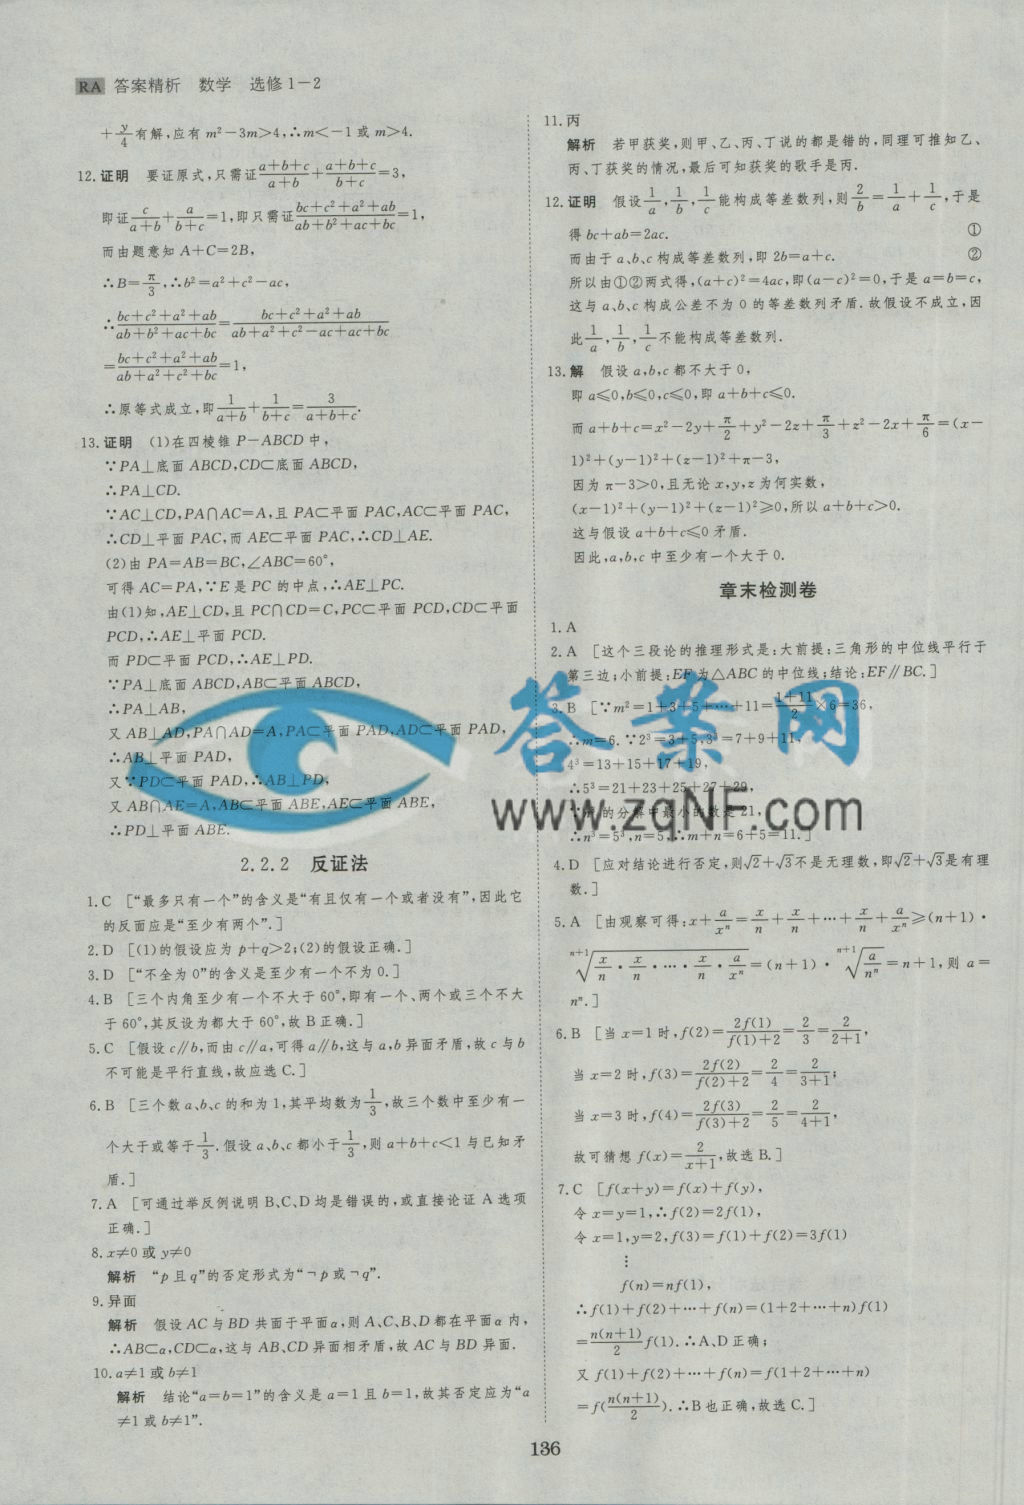 RA 答案精析 数学 选修1-2
+y/4有解,应有 m²-3m>4,∴m<-1 或 m>4.
12.证明 要证原式,只需证(a+b+c)/(a+b)+(a+b+c)/(b+c)=3,
即证c/(a+b)+a/(b+c)=1,即只需证(bc+c²+a²+ab)/(ab+b²+ac+bc)=1,
而由题意知 A+C=2B,
∴B=π/3,∴b²=a²+c²-ac,
∴(bc+c²+a²+ab)/(ab+b²+ac+bc)=(bc+c²+a²+ab)/(ab+a²+c²-ac+ac+bc)
=(bc+c²+a²+ab)/(ab+a²+c²+bc)=1,
∴原等式成立,即1/(a+b)+1/(b+c)=3/(a+b+c).
13.证明 (1)在四棱锥 P-ABCD 中,
∵PA⊥底面 ABCD,CD⊂底面 ABCD,
∴PA⊥CD.
∵AC⊥CD,PA∩AC=A,且 PA⊂平面 PAC,AC⊂平面 PAC,
∴CD⊥平面 PAC,而 AE⊂平面 PAC,∴CD⊥AE.
(2)由 PA=AB=BC,∠ABC=60°,
可得 AC=PA,∵E 是 PC 的中点,∴AE⊥PC.
由(1)知,AE⊥CD,且 PC∩CD=C,PC⊂平面 PCD,CD⊂平面
PCD,∴AE⊥平面 PCD.
而 PD⊂平面 PCD,∴AE⊥PD.
∵PA⊥底面 ABCD,AB⊂平面 ABCD,
∴PA⊥AB,
又 AB⊥AD,PA∩AD=A,PA⊂平面 PAD,AD⊂平面 PAD,
∴AB⊥平面 PAD,
又∵PD⊂平面 PAD,∴AB⊥PD,
又 AB∩AE=A,AB⊂平面 ABE,AE⊂平面 ABE,
∴PD⊥平面 ABE.
2.2.2 反证法
1.C [“最多只有一个”的含义是“有且仅有一个或者没有”,因此它
的反面应是“至少有两个”.]
2.D [(1)的假设应为 p+q>2;(2)的假设正确.]
3.D [“不全为0”的含义是至少有一个不为0.]
4.B [三个内角至少有一个不大于60°,即有一个、两个或三个不大
于60°,其反设为都大于60°,故B正确.]
5.C [假设 c∥b,而由 c∥a,可得 a∥b,这与 a,b 异面矛盾,故 c 与 b
不可能是平行直线,故应选C.]
6.B [三个数 a、b、c 的和为1,其平均数为1/3,故三个数中至少有一
个大于或等于1/3.假设 a、b、c 都小于1/3,则 a+b+c<1 与已知矛
盾.]
7.A [可通过举反例说明 B、C、D 均是错误的,或直接论证 A 选项
正确.]
8.x≠0 或 y≠0
解析 “p 且 q”的否定形式为“¬p 或¬q”.
9.异面
解析 假设 AC 与 BD 共面于平面 α,则 A、C、B、D 都在平面 α 内,
∴AB⊂α,CD⊂α,这与 AB、CD 异面相矛盾,故 AC 与 BD 异面.
10.a≠1 或 b≠1
解析 结论“a=b=1”的含义是 a=1 且 b=1,故其否定应为“a
≠1 或 b≠1”.
11.丙
解析 若甲获奖,则甲、乙、丙、丁说的都是错的,同理可推知乙、
丙、丁获奖的情况,最后可知获奖的歌手是丙.
12.证明 假设1/a,1/b,1/c能构成等差数列,则2/b=1/a+1/c,于是
得 bc+ab=2ac. ①
而由于 a、b、c 构成等差数列,即 2b=a+c. ②
所以由①②两式得,(a+c)²=4ac,即(a-c)²=0,于是 a=b=c,
这与 a、b、c 构成公差不为 0 的等差数列矛盾.故假设不成立,因
此1/a,1/b,1/c不能构成等差数列.
13.解 假设 a,b,c 都不大于 0,
即 a≤0,b≤0,c≤0,即 a+b+c≤0.
而 a+b+c=x²-2y+π/2+y²-2z+π/3+z²-2x+π/6=(x-
1)²+(y-1)²+(z-1)²+π-3,
因为 π-3>0,且无论 x,y,z 为何实数,
(x-1)²+(y-1)²+(z-1)²≥0,所以 a+b+c>0.
这与假设 a+b+c≤0 矛盾.
因此,a,b,c 中至少有一个大于 0.
章末检测卷
1.A
2.A [这个三段论的推理形式是:大前提:三角形的中位线平行于
第三边;小前提:EF 为△ABC 的中位线;结论:EF∥BC.]
3.B [∵m²=1+3+5+…+11=(1+11)/2×6=36,
∴m=6.∵2³=3+5,3³=7+9+11,
4³=13+15+17+19,
∴5³=21+23+25+27+29,
的分解中最小的数是21,
∴n³=5³,n=5,∴m+n=6+5=11.]
答案网
www.zqNF.com
4.D [应对结论进行否定,则√2+√3不是无理数,即√2+√3是有理
数.]
5.A [由观察可得:x+a/xⁿ=x/n+x/n+…+x/n+a/xⁿ≥(n+1)·
ⁿ⁺¹√(x/n·x/n·…·x/n·a/xⁿ)=(n+1)·ⁿ⁺¹√(a/nⁿ)=n+1,则 a=
nⁿ.]
6.B [当 x=1 时,f(2)=2f(1)/(f(1)+2)=2/3=2/(2+1),
当 x=2 时,f(3)=2f(2)/(f(2)+2)=2/4=2/(3+1);
当 x=3 时,f(4)=2f(3)/(f(3)+2)=2/5=2/(4+1),
故可猜想 f(x)=2/(x+1),故选B.]
7.C [f(x+y)=f(x)+f(y),
令 x=y=1,∴f(2)=2f(1),
令 x=1,y=2,f(3)=f(1)+f(2)=3f(1)
⋮
f(n)=nf(1),
∴f(1)+f(2)+…+f(n)=(1+2+…+n)f(1)
=n(n+1)/2 f(1).∴A、D正确;
又 f(1)+f(2)+…+f(n)=f(1+2+…+n)
=f(n(n+1)/2).∴B也正确,故选C.]
136